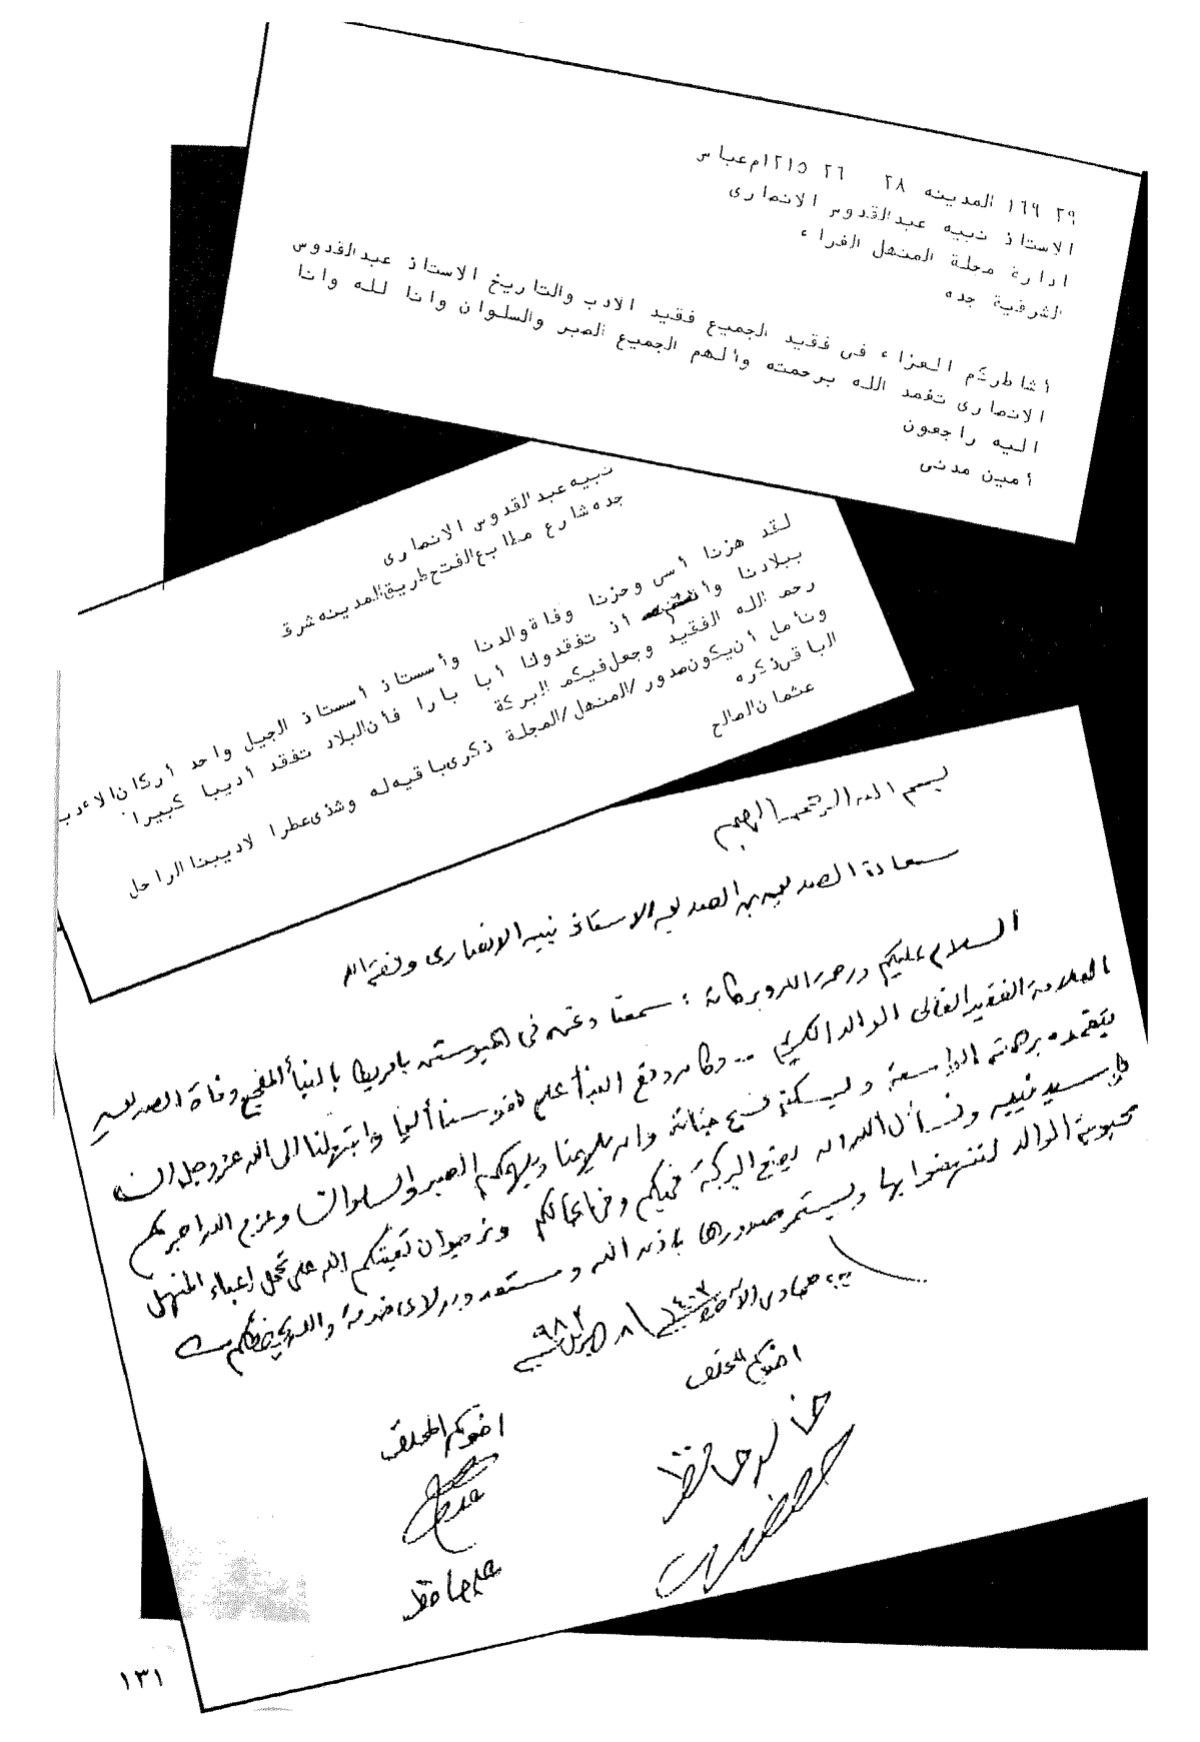 ٢٩ ١٦٩ المدينه ٢٨ ٢٦ ١٢١٥م عباس
الاستاذ نبيه عبدالقدوس الانصارى
ادارة مجلة المنهل الغراء
الشرفية جده
أشاطركم العزاء فى فقيد الجميع فقيد الادب والتاريخ الاستاذ عبدالقدوس
الانصارى تغمد الله برحمته وألهم الجميع الصبر والسلوان وانا لله وانا
اليه راجعون
أمين مدنى
نبيه عبدالقدوس الانصارى
جده شارع مطابع الفتح طريق المدينه شرق
لقد هزنا أسى وحزنا وفاة والدنا وأستاذ أستاذ الجيل واحد أركان الادب
ببلادنا وأنتم أذ تفقدونا أبا بارا فأن البلاد تفقد أديبا كبيرا
رحم الله الفقيد وجعل فيكم البركة
ونأمل أن يكون صدور /المنهل/المجلة ذكرى باقيه له وشذى عطرا لاديبنا الراحل
الباقى ذكره
عثمان الصالح
بسم الله الرحمن الرحيم
سعادة الصديق بن الصديق الاستاذ نبيه الانصارى وفقه الله
السلام عليكم ورحمة الله وبركاته : سمعنا ونحن فى هيوستن بامريكا بالنبأ المفجع وفاة الصديق
العلامة الفقيد الغالى الوالد الكريم .. وكان وقع النبأ على نفوسنا أليما وابتهلنا الى الله عز وجل ان
يتغمده برحمته الواسعة ويسكنه فسيح جناته وان يلهمنا ويلهمكم الصبر والسلوان وعزم الله اجركم
سيد نبيه ونسأل الله ان يضع البركة فيكم وفى اعمالكم ونرجو ان تعينكم الله على تحمل اعباء المنهل
محبوبة الوالد لتنهضوا بها ويستمر صدورها باذن الله ومستعدون لاى خدمة والله يحفظكم
جمادى الآخر ١٤٠٣ / ٨ ابريل ١٩٨٣
اخوكم المخلص
خالد حافظ
اخوكم المخلص
على حافظ
١٣١